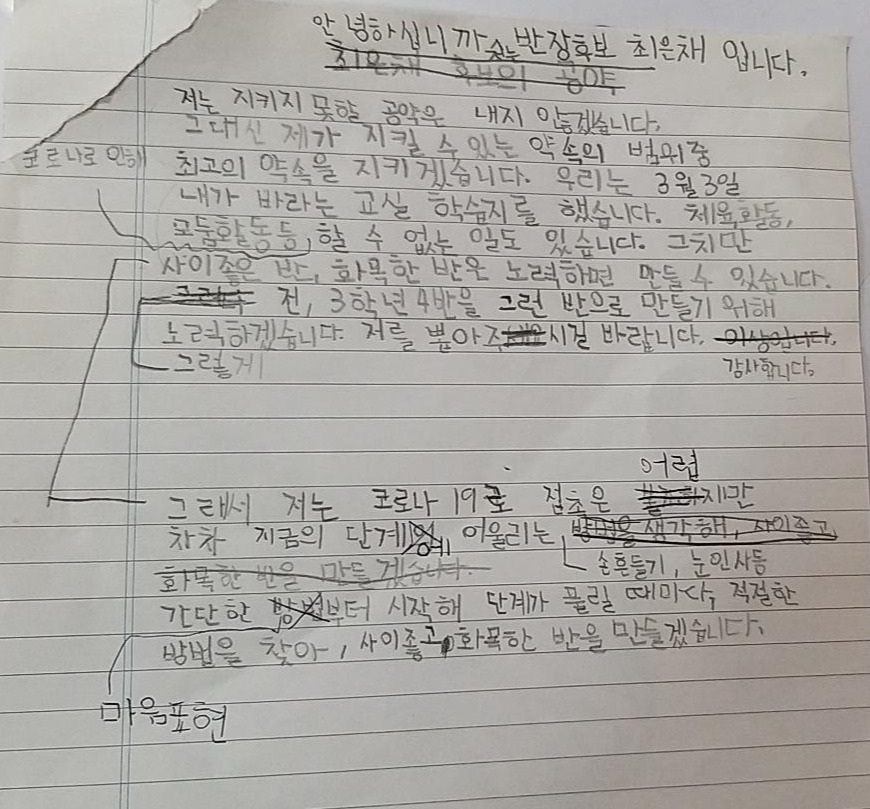 안녕하십니까 저는 반장후보 최은채 입니다.
최은채 후보의 공약
저는 지키지 못할 공약은 내지 않겠습니다.
그대신 제가 지킬 수 있는 약속의 범위중
코로나로 인해
최고의 약속을 지키겠습니다. 우리는 3월 3일
내가 바라는 교실 학습지를 했습니다. 체육활동,
모둠활동등, 할 수 없는 일도 있습니다. 그치만
사이좋은 반, 화목한 반은 노력하면 만들 수 있습니다.
그래서 전, 3학년 4반을 그런 반으로 만들기 위해
노력하겠습니다. 저를 뽑아주시길 바랍니다. 이상입니다.
그렇게
감사합니다.
어렵
그래서 저는 코로나 19로 접촉은 지만
차차 지금의 단계에 어울리는, 방법을 생각해, 사이좋고
손흔들기, 눈인사등
화목한 반을 만들겠습니다.
간단한 방법부터 시작해 단계가 풀릴 때마다, 적절한
방법을 찾아, 사이좋고, 화목한 반을 만들겠습니다.
마음표현